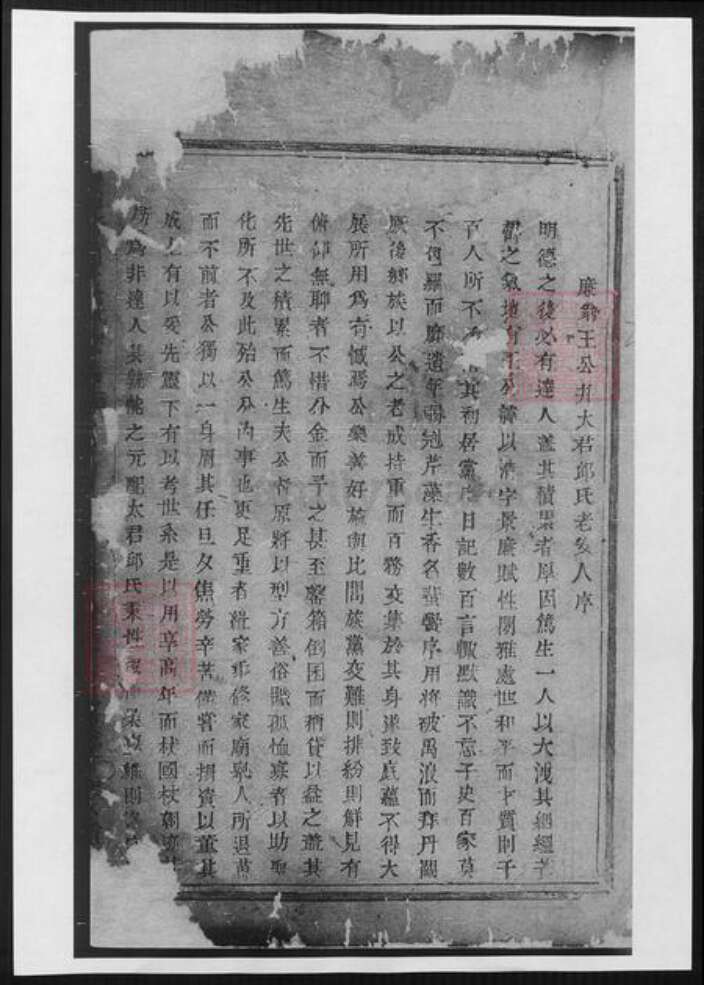 廉翁王公井太君邱氏老安人序
明德之後必有達人蓋其積累者厚因篤生一人以大洩其絪縕
鬱之氣地有王公諱以清字景廉賦性閒雅處世和平而才質則千
百人所不 其初居黨庠日記數百言輒默識不忘子史百家莫
不包羅而靡遺年弱冠芹藻生香名蜚黌序用將破禹浪而拜丹闕
厥後鄉族以公之老成持重而百務交集於其身遂致底蘊不得大
展所用爲有憾焉公樂善好施與比閭族黨交難則排紛則解見有
俯仰無聊者不惜分金而予之甚至罄箱倒囷而稱貸以益之蓋其
先世之積累而篤生夫公者原將以型方善俗賑孤恤寡者以助聖
化所不及此殆公分內事也更足重者維家乘修家廟衆人所退萬
而不前者公獨以一身肩其任旦夕焦勞辛苦備嘗而捐資以董其
成上有以妥先靈下有以考世系是以用享高年而杖國杖朝
所爲非達人其孰能之元配太君邱氏秉性